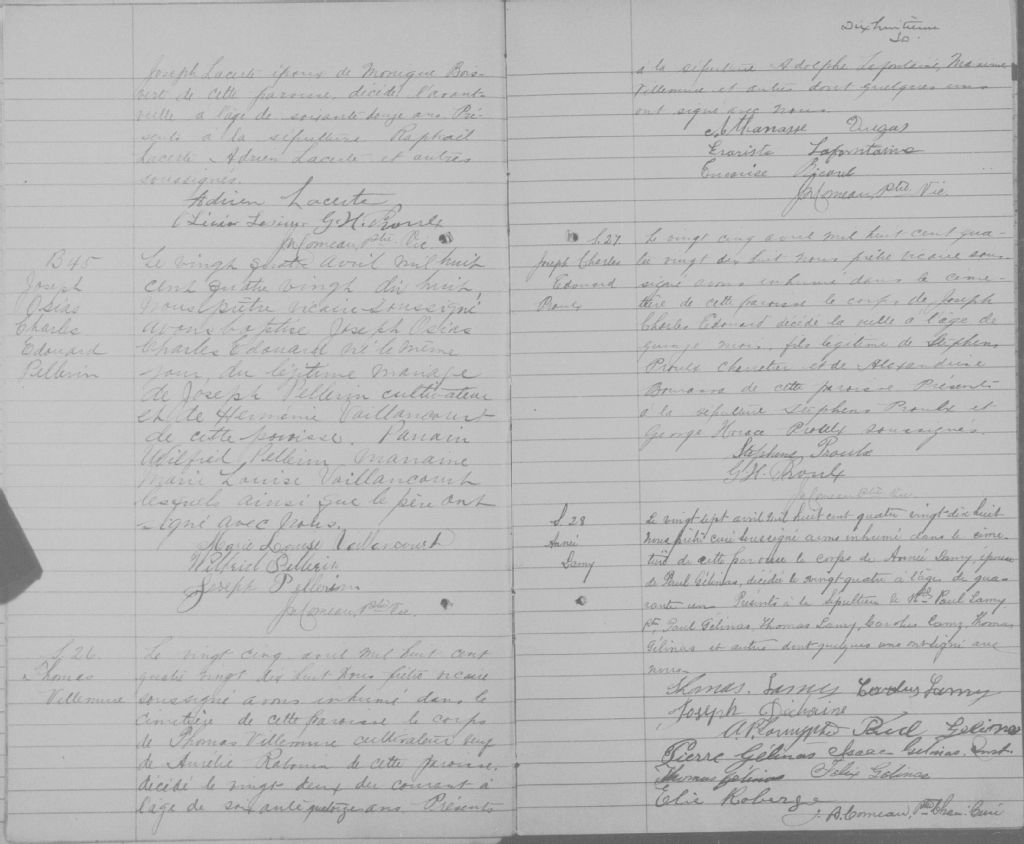 Joseph Lacerte époux de Monique Bois-
vert de cette paroisse, décédé l'avant
veille à l'âge de soixante douze ans. Pré-
sents à la sépulture Raphaël
Lacerte, Adrien Lacerte et autres
soussignés.
Adrien Lacerte
G. H. Proulx
J. A. Comeau, Ptre Vic.
B 45
Joseph
Osias
Charles
Edouard
Pellerin
Le vingt quatre avril mil huit
cent quatre vingt dix huit
nous prêtre vicaire soussigné
avons baptisé Joseph Osias
Charles Edouard né le même
jour, du légitime mariage
de Joseph Pellerin cultivateur
et de Herménie Vaillancourt
de cette paroisse. Parrain
Wilfrid Pellerin, marraine
Marie Louise Vaillancourt
lesquels ainsi que le père ont
signé avec nous.
Marie Louise Vaillancourt
Wilfrid Pellerin
Joseph Pellerin
J. A. Comeau, Ptre Vic.
S. 26
Thomas
Villemure
Le vingt cinq avril mil huit cent
quatre vingt dix huit nous prêtre vicaire
soussigné avons inhumé dans le
cimetière de cette paroisse le corps
de Thomas Villemure cultivateur veuf
de Aurélie Rabouin de cette paroisse,
décédé le vingt deux du courant à
l'âge de soixante quatorze ans. Présents
Dix huitième
à la sépulture Adolphe Lafontaine, Maxime
Villemure et autres dont quelques uns
ont signé avec nous.
Manasse Dugas
Evariste Lafontaine
Ricard
J. A. Comeau, Ptre Vic.
S. 27
Joseph Charles
Edouard
Proulx
Le vingt cinq avril mil huit cent qua-
tre vingt dix huit nous prêtre vicaire sous-
signé avons inhumé dans le cime-
tière de cette paroisse le corps de Joseph
Charles Edouard décédé la veille à l'âge de
quinze mois, fils légitime de Stephens
Proulx charretier et de Alexandrine
de cette paroisse Présents
à la sépulture Stephens Proulx et
George Horace Proulx soussignés.
Stephens Proulx
G. H. Proulx
J. A. Comeau Ptre Vic.
S. 28
Année
Lamy
Le vingt sept avril mil huit cent quatre vingt dix huit
nous prêtre curé soussigné avons inhumé dans le cime-
tière de cette paroisse le corps de Année Lamy, épouse
de Paul Gélinas, décédée le vingt quatre à l'âge de qua-
rante un Présents à la sépulture le Paul Lamy
Ptre, Paul Gélinas, Thomas Lamy, Carolus Lamy, Thomas
Gélinas et autres dont quelques uns ont signé avec
nous
Thomas Lamy Carolus Lamy
Joseph
Paul Gélinas
Pierre Gélinas Isaac Gélinas
Thomas Gélinas Felix Gélinas
Elie Roberge
J. A. Comeau, Ptre Chan. Curé